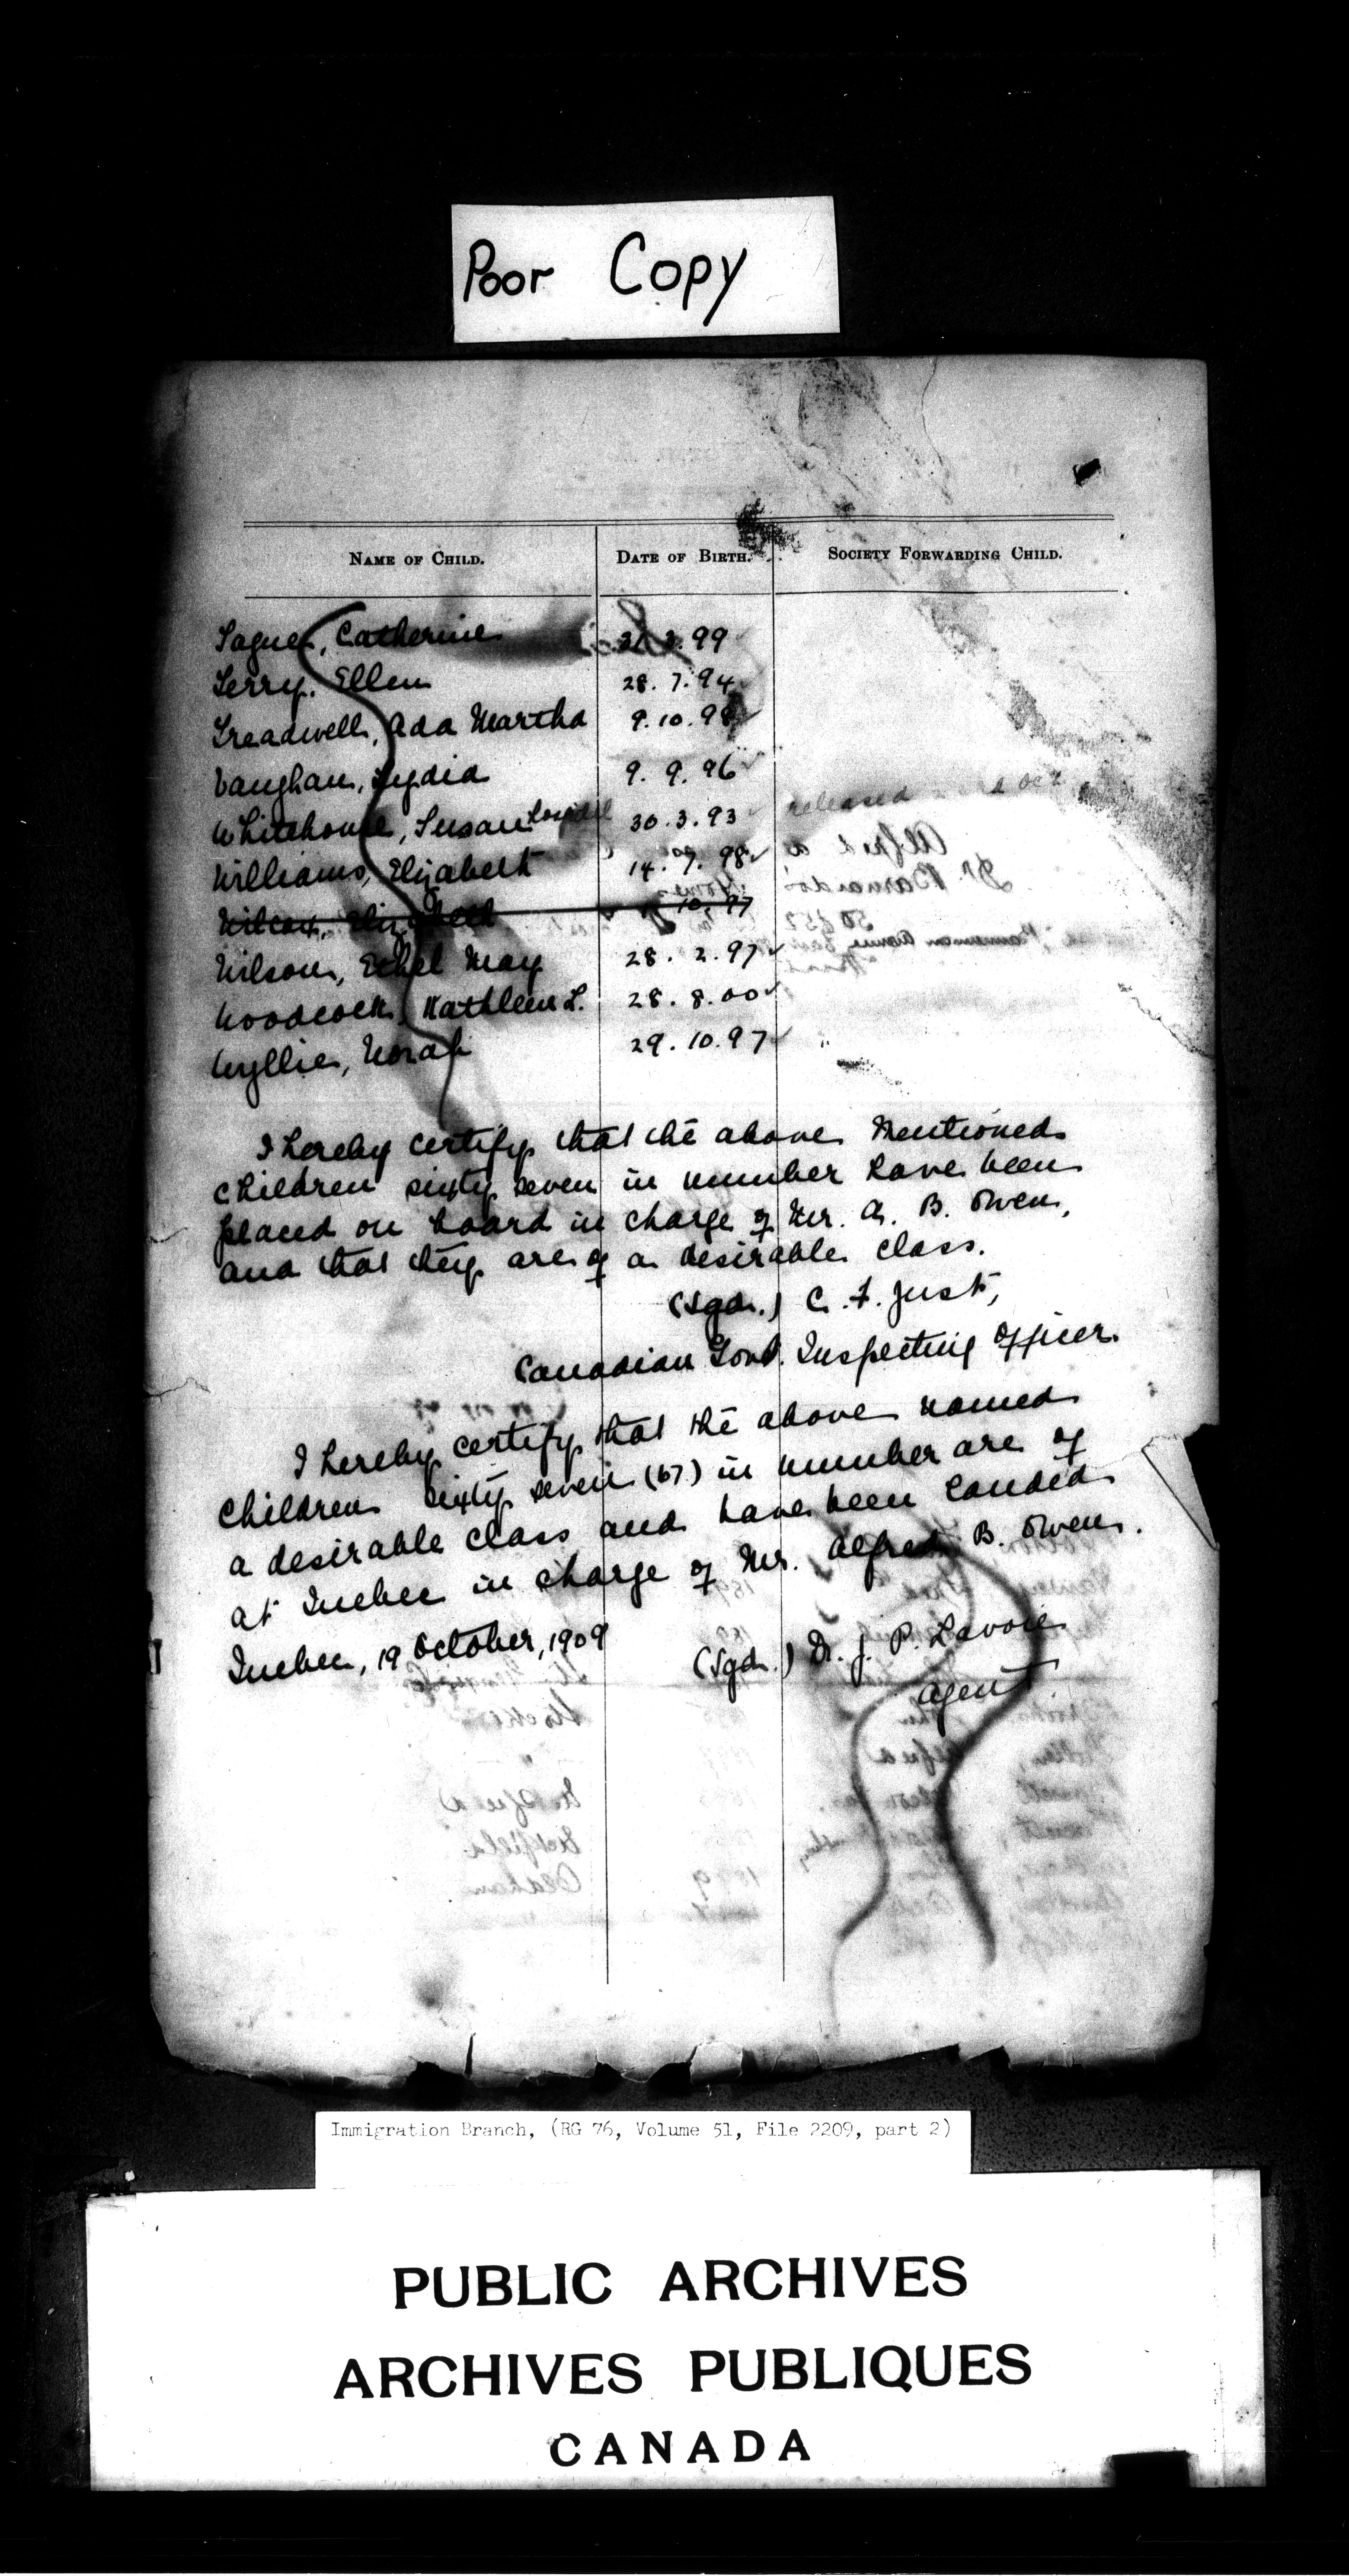 Poor Copy
NAME OF CHILD. DATE OF BIRTH. SOCIETY FORWARDING CHILD.
Catherine 3.99
Terry, Ellen 28.7.94
Treadwell, Ada Martha 9.10.98
Vaughan, Lydia 9.9.96
Whitehouse, Susan Hospital 30.3.93 released Oct
Williams, Elizabeth 14.7.98
Wilcox, Elizabeth 10.97
Wilson, Ethel May 28.2.97
Woodcock, Kathleen L. 28.8.00
Wyllie, Norah 29.10.97
I hereby certify that the above mentioned
children sixty seven in number have been
placed on board in charge of Mr. A. B. Owen,
and that they are of a desirable class.
(Sgd.) C. F. Just,
Canadian Govt. Inspecting Officer.
I hereby certify that the above named
children sixty seven (67) in number are of
a desirable class and have been landed
at Quebec in charge of Mr. Alfred B. Owen.
Quebec, 19 October, 1909
(Sgd.) Dr. J. P. Lavoie
Agent
Immigration Branch, (RG 76, Volume 51, File 2209, part 2)
PUBLIC ARCHIVES
ARCHIVES PUBLIQUES
CANADA